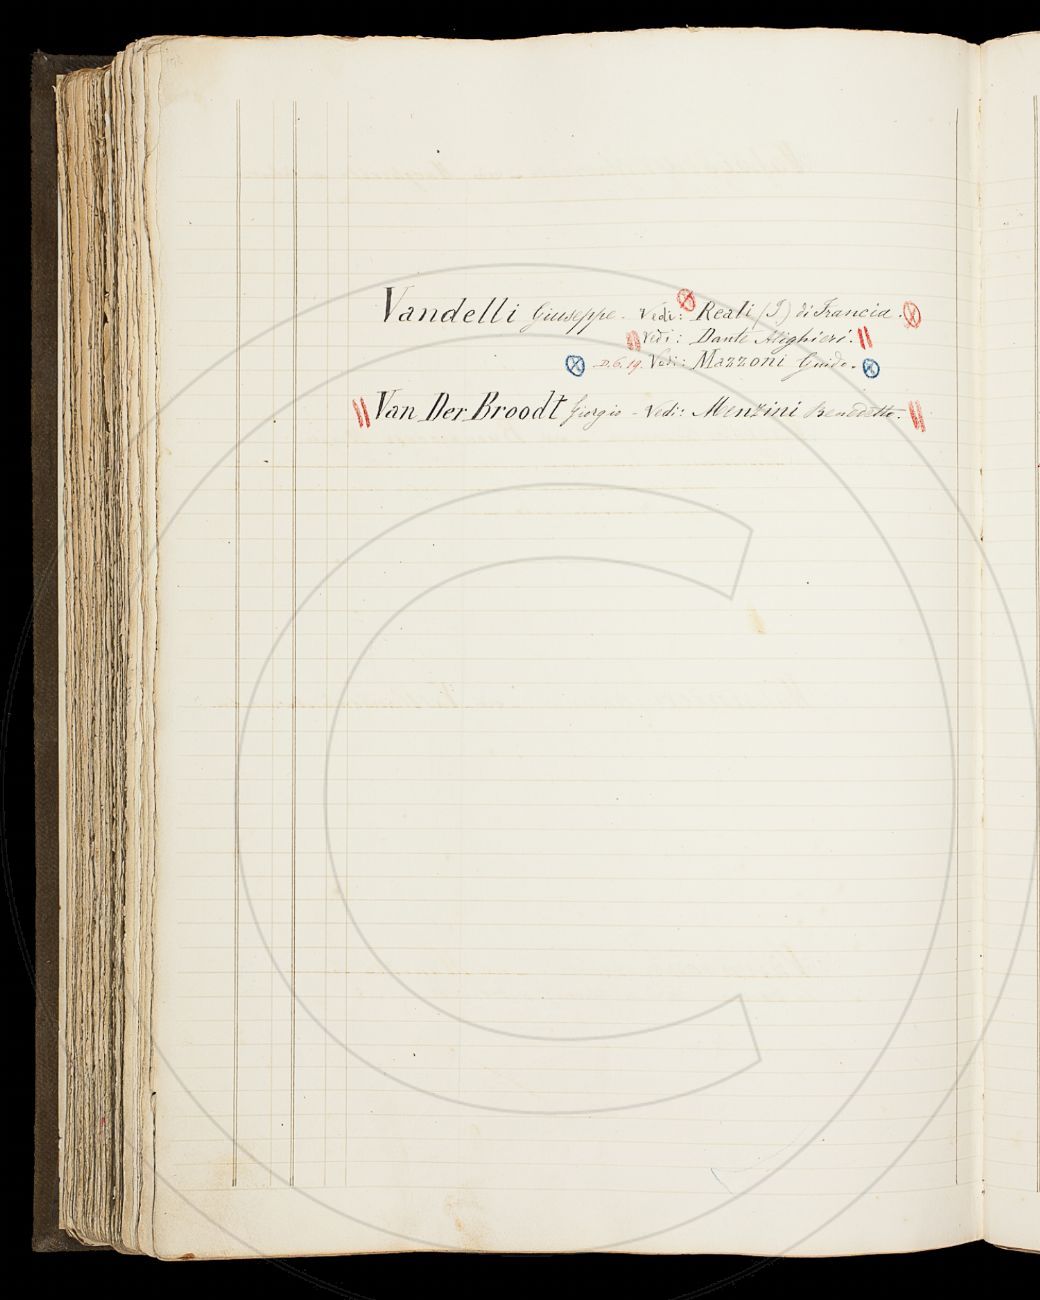 Vandelli Giuseppe - Vedi: Reali (I) di Francia.
Vedi: Dante Alighieri.
D.6.19. Vedi: Mazzoni Guido.
Van Der Broodt Giorgio - Vedi: Menzini Benedetto.